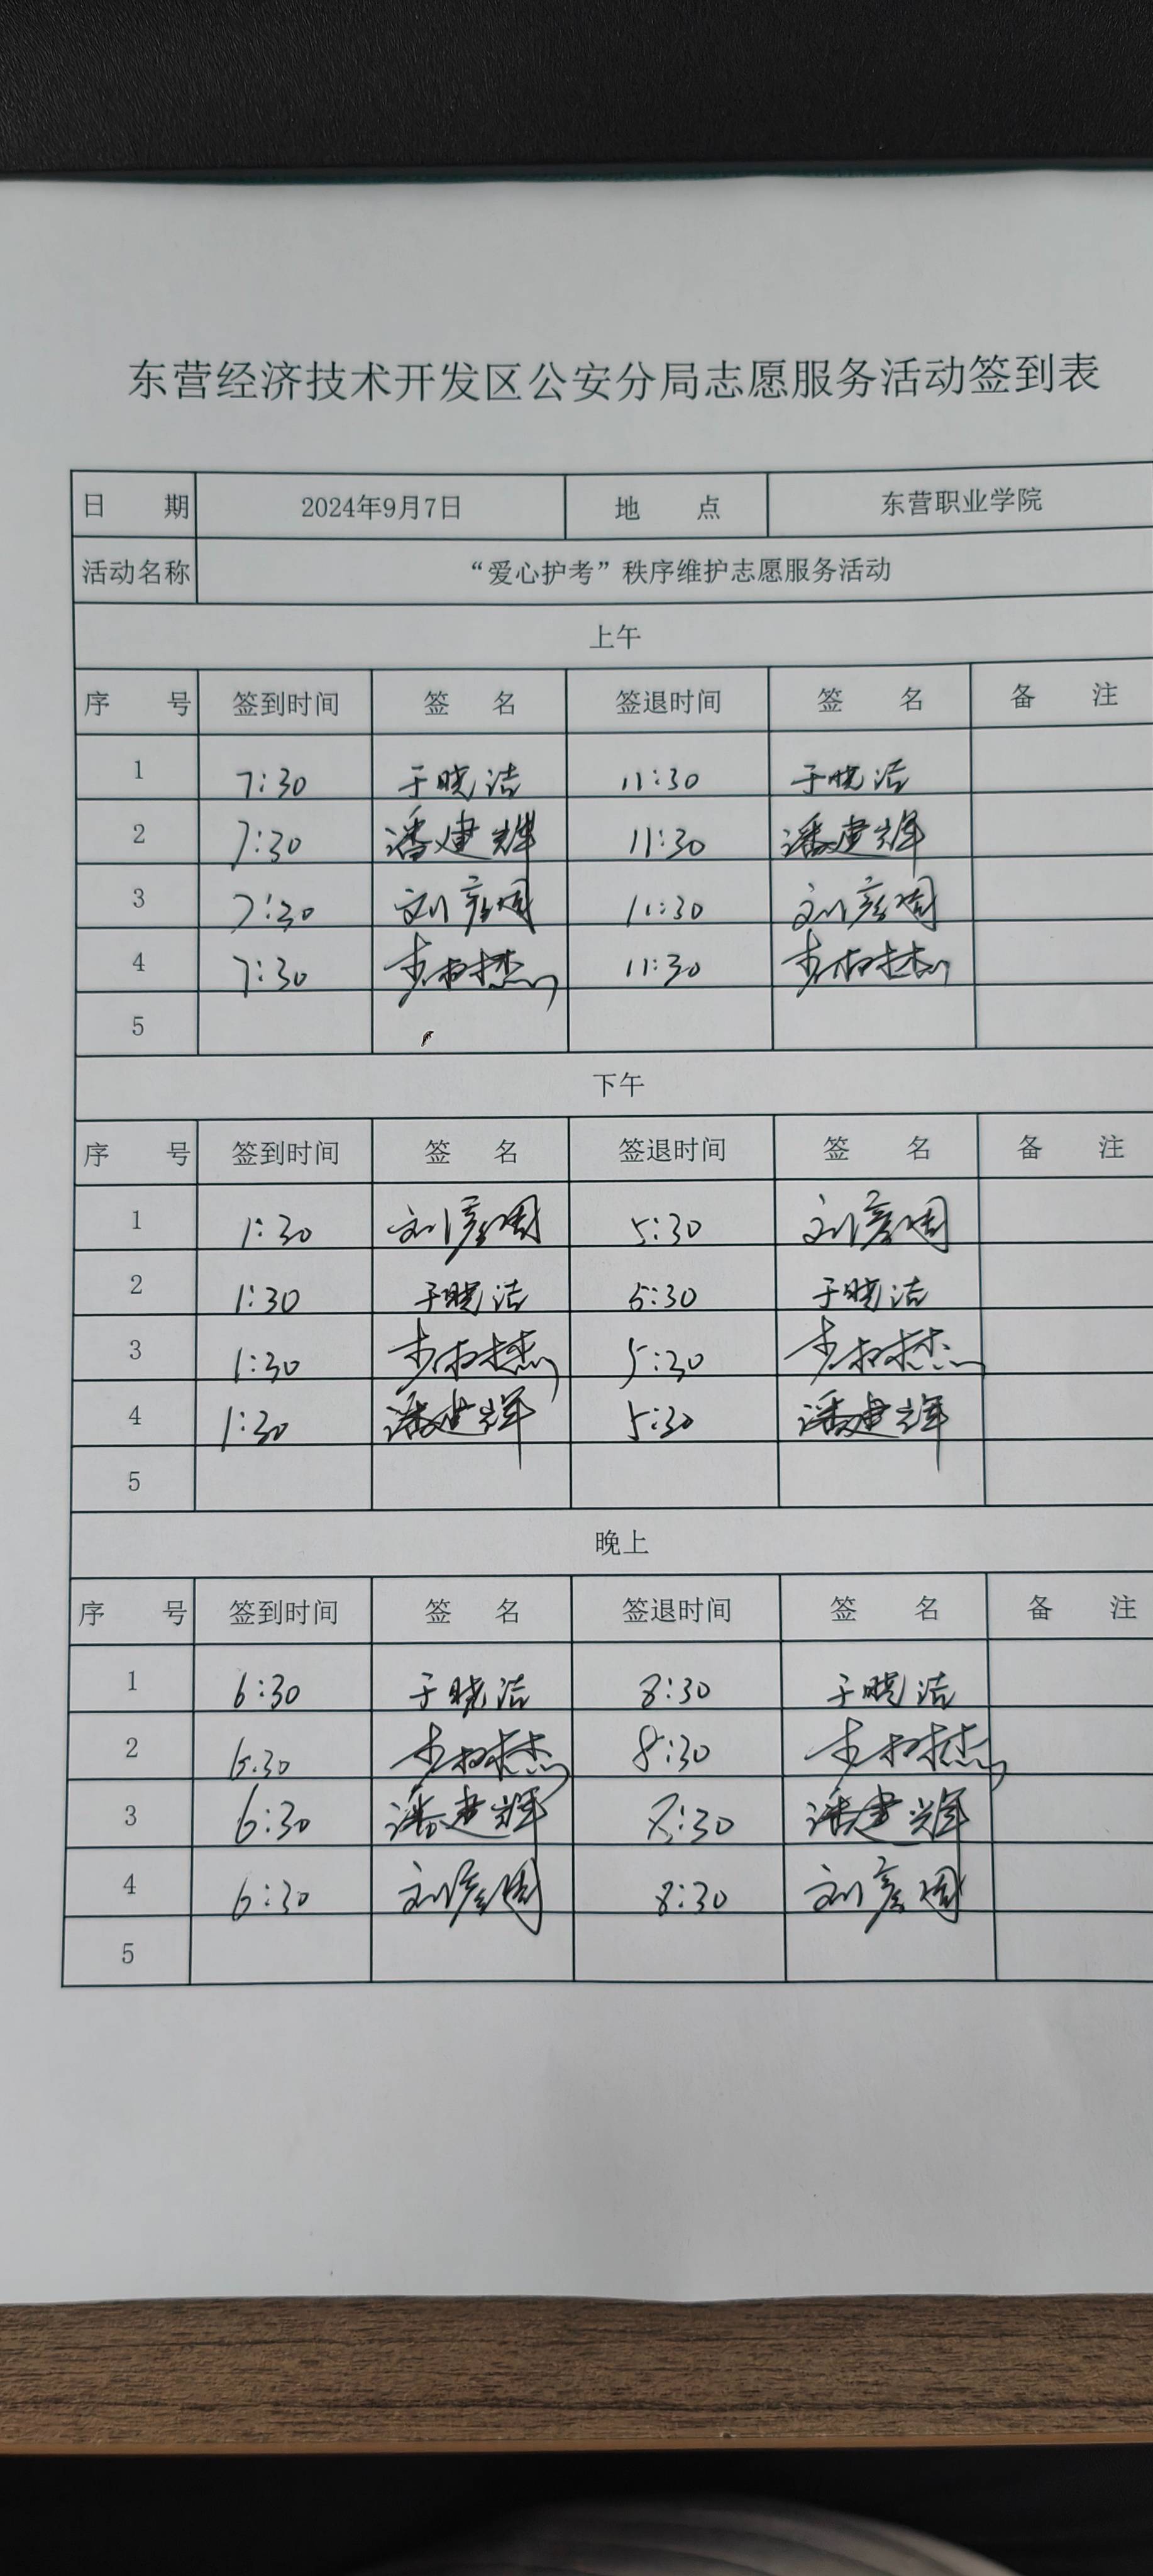 东营经济技术开发区公安分局志愿服务活动签到表
日 期 2024年9月7日 地 点 东营职业学院
活动名称 “爱心护考”秩序维护志愿服务活动
上午
序 号 签到时间 签 名 签退时间 签 名 备 注
1 7:30 于晓洁 11:30 于晓洁
2 7:30 潘建辉 11:30 潘建辉
3 7:30 刘彦周 11:30 刘彦周
4 7:30 11:30
5
下午
序 号 签到时间 签 名 签退时间 签 名 备 注
1 1:30 刘彦周 5:30 刘彦周
2 1:30 于晓洁 5:30 于晓洁
3 1:30 5:30
4 1:30 潘建辉 5:30 潘建辉
5
晚上
序 号 签到时间 签 名 签退时间 签 名 备 注
1 6:30 于晓洁 8:30 于晓洁
2 6:30 8:30
3 6:30 潘建辉 8:30 潘建辉
4 6:30 刘彦周 8:30 刘彦周
5